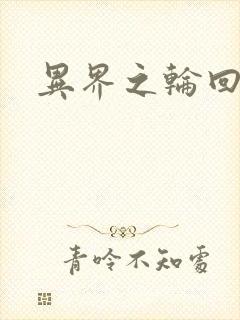 異界之輪回
青呤不知處